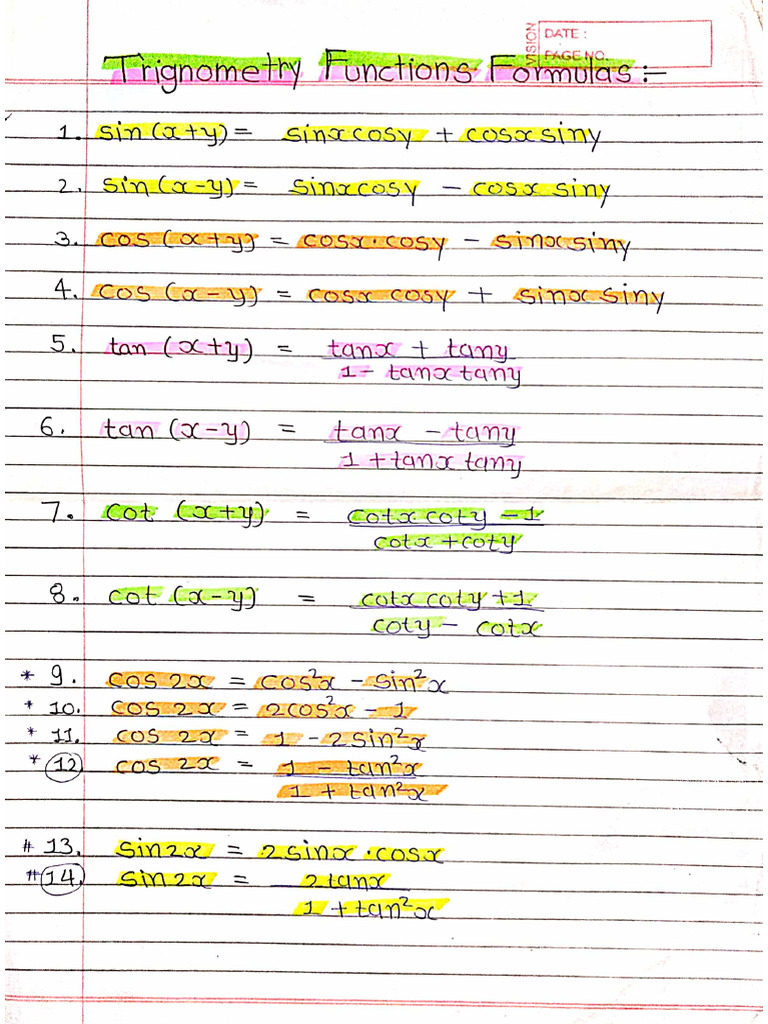 VISION
DATE :
PAGE NO.
Trignometry Functions Formulas :-
1. sin (x+y) = sinx cosy + cosx siny
2. sin (x-y) = sinx cosy - cosx siny
3. cos (x+y) = cosx · cosy - sinx siny
4. cos (x-y) = cosx cosy + sinx siny
5. tan (x+y) = tanx + tany
1 - tanx tany
6. tan (x-y) = tanx - tany
1 + tanx tany
7. cot (x+y) = cotx coty - 1
cotx + coty
8. cot (x-y) = cotx coty + 1
coty - cotx
* 9. cos 2x = cos²x - sin²x
* 10. cos 2x = 2cos²x - 1
* 11. cos 2x = 1 - 2sin²x
* 12 cos 2x = 1 - tan²x
1 + tan²x
# 13. sin2x = 2sinx · cosx
# 14. sin2x = 2tanx
1 + tan²x